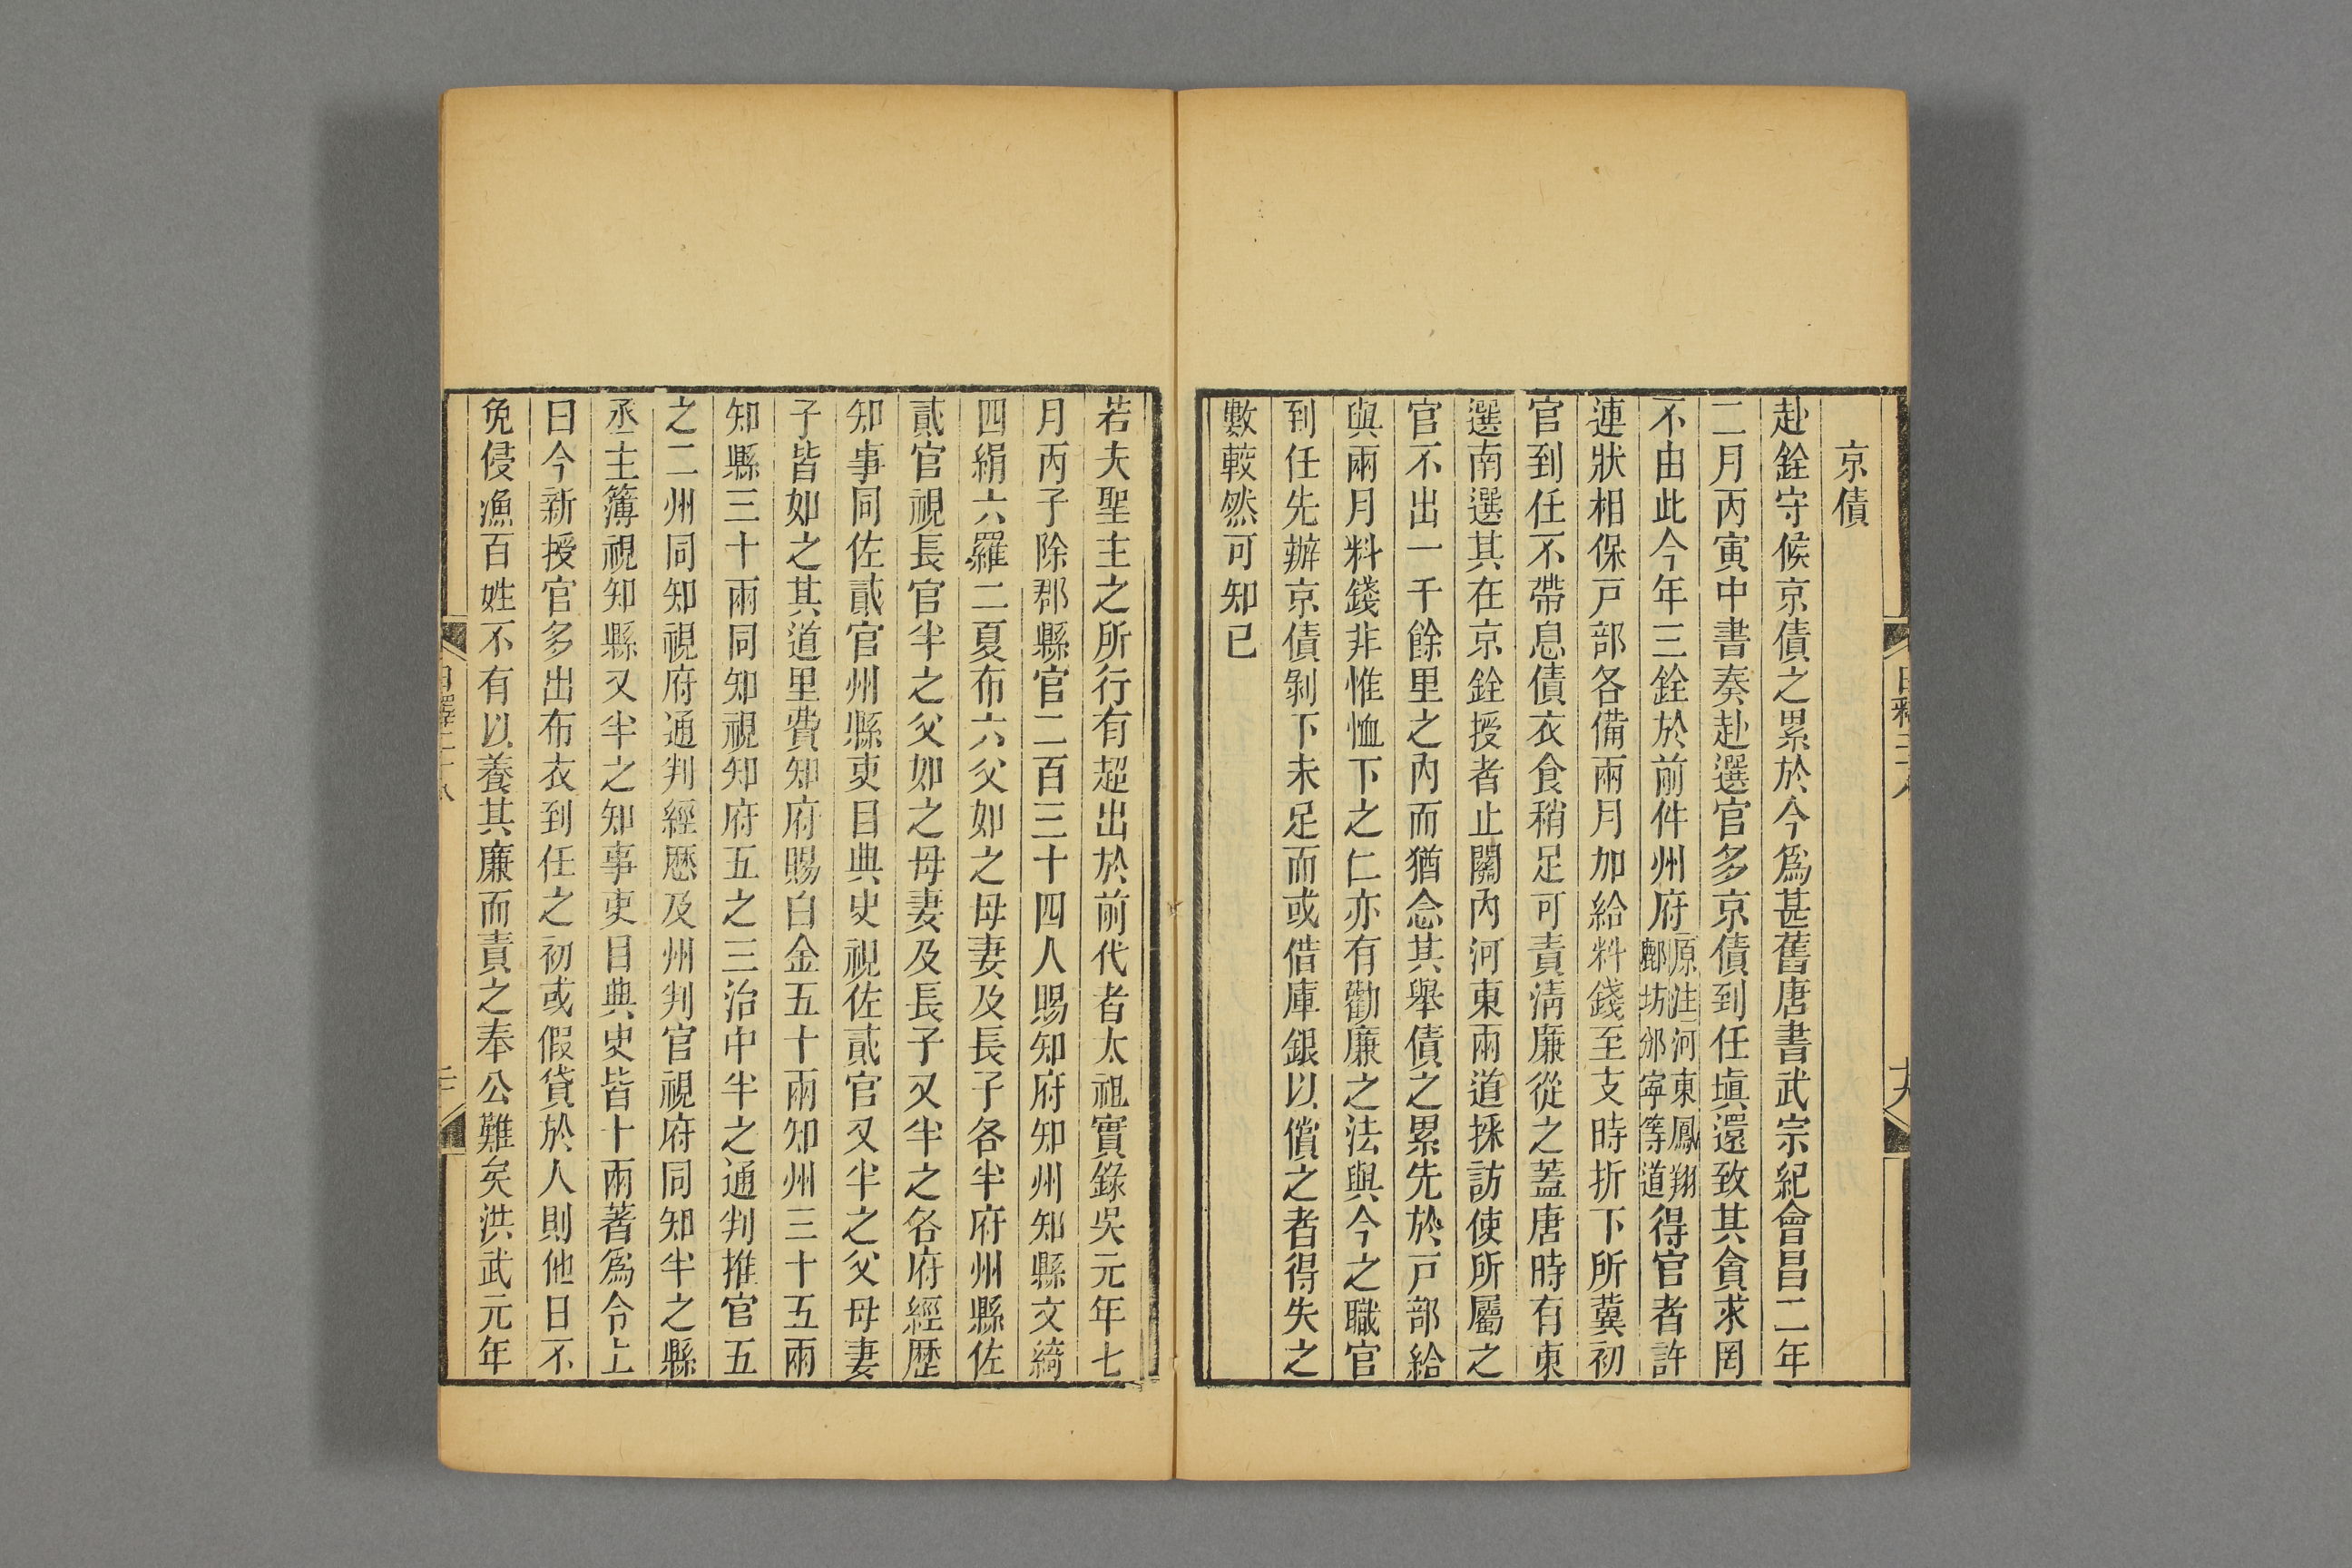 京債
赴銓守候京債之累於今爲甚舊唐書武宗紀會昌二年
二月丙寅中書奏赴選官多京債到任塡還致其貪求罔
不由此今年三銓於前件州府原注河東鳳翔鄜坊邠寧等道得官者許
連狀相保戸部各備兩月加給料錢至支時折下所冀初
官到任不帶息債衣食稍足可責淸廉從之蓋唐時有東
選南選其在京銓授者止關內河東兩道採訪使所屬之
官不出一千餘里之內而猶念其舉債之累先於戸部給
與兩月料錢非惟恤下之仁亦有勸廉之法與今之職官
到任先辦京債剝下未足而或借庫銀以償之者得失之
數較然可知已
若夫聖主之所行有超出於前代者太祖實錄吳元年七
月丙子除郡縣官二百三十四人賜知府知州知縣文綺
四絹六羅二夏布六父如之母妻及長子各半府州縣佐
貳官視長官半之父如之母妻及長子又半之各府經歷
知事同佐貳官州縣吏目典史視佐貳官又半之父母妻
子皆如之其道里費知府賜白金五十兩知州三十五兩
知縣三十兩同知視知府五之三治中半之通判推官五
之二州同知視府通判經歷及州判官視府同知半之縣
丞主簿視知縣又半之知事吏目典史皆十兩著爲令上
曰今新授官多出布衣到任之初或假貸於人則他日不
免侵漁百姓不有以養其廉而責之奉公難矣洪武元年